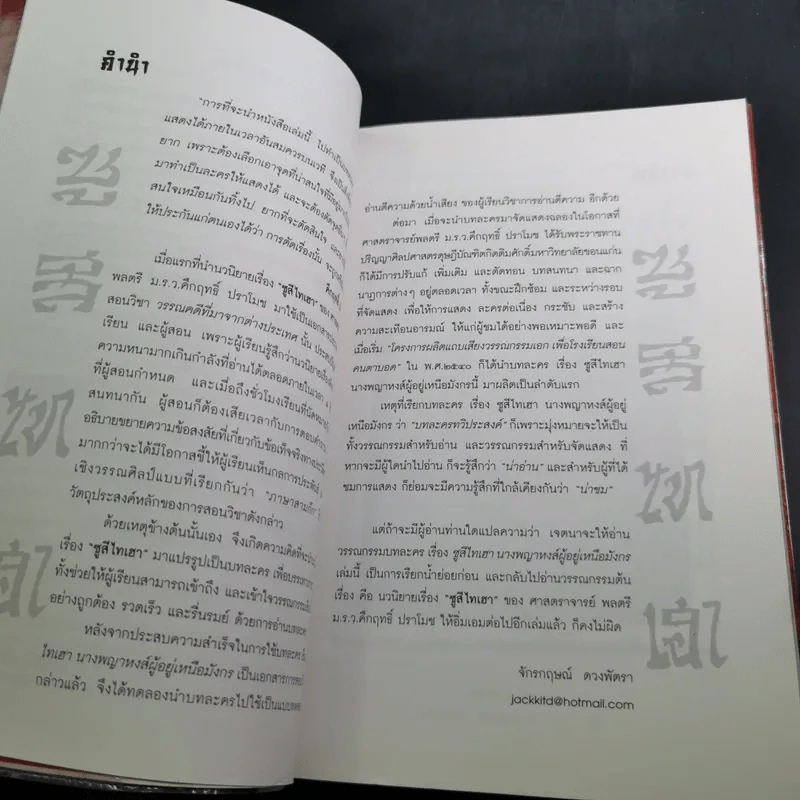 คำนำ
"การที่จะนำหนังสือเล่มนี้ ไปทำเป็น
แสดงได้ภายในเวลาอันสมควรบนเวที จึงเป็น
ยาก เพราะต้องเลือกเอาจุดที่น่าสนใจที่มีอยู่
มาทำเป็นละครให้แสดงได้ และจะต้องตัด
สนใจเหมือนกันทิ้งไป ยากที่จะตัดสินใจ และ
ให้ประกันแก่ตนเองได้ว่า การตัดเรื่องนั้น จะถูก
เมื่อแรกที่นำนวนิยายเรื่อง "ซูสีไทเฮา" ของ
พลตรี ม.ร.ว.คึกฤทธิ์ ปราโมช มาใช้เป็นเอกสาร
สอนวิชา วรรณคดีที่มาจากต่างประเทศ นั้น ประสบ
เรียน และผู้สอน เพราะผู้เรียนรู้สึกว่านวนิยายเรื่อง
ความหนามากเกินกำลังที่อ่านได้ตลอดภายในเวลา
ที่ผู้สอนกำหนด และเมื่อถึงชั่วโมงเรียนที่นัดหมาย
สนทนากัน ผู้สอนก็ต้องเสียเวลากับการตอบคำถาม
อธิบายขยายความข้อสงสัยที่เกี่ยวกับข้อเท็จจริงทาง
มากกว่าจะได้มีโอกาสชี้ให้ผู้เรียนเห็นกลการประพันธ์
เชิงวรรณศิลป์แบบที่เรียกกันว่า "ภาษาสามก๊ก"
วัตถุประสงค์หลักของการสอนวิชาดังกล่าว
ด้วยเหตุข้างต้นนั้นเอง จึงเกิดความคิดที่จะนำ
เรื่อง "ซูสีไทเฮา" มาแปรรูปเป็นบทละคร เพื่อบรรเทา
ทั้งช่วยให้ผู้เรียนสามารถเข้าถึง และเข้าใจวรรณกรรม
อย่างถูกต้อง รวดเร็ว และรื่นรมย์ ด้วยการอ่านบทละคร
หลังจากประสบความสำเร็จในการใช้บทละคร
ไทเฮา นางพญาหงส์ผู้อยู่เหนือมังกร เป็นเอกสารการสอน
กล่าวแล้ว จึงได้ทดลองนำบทละครไปใช้เป็นแบบ
อ่านตีความด้วยน้ำเสียง ของผู้เรียนวิชาการอ่านตีความ อีกด้วย
ต่อมา เมื่อจะนำบทละครมาจัดแสดงฉลองในโอกาสที่
ศาสตราจารย์พลตรี ม.ร.ว.คึกฤทธิ์ ปราโมช ได้รับพระราชทาน
ปริญญาศิลปศาสตรดุษฎีบัณฑิตกิตติมศักดิ์มหาวิทยาลัยขอนแก่น
ก็ได้มีการปรับแก้ เพิ่มเติม และตัดทอน บทสนทนา และฉาก
นาฏการต่างๆ อยู่ตลอดเวลา ทั้งขณะฝึกซ้อม และระหว่างรอบ
ที่จัดแสดง เพื่อให้การแสดง ละครต่อเนื่อง กระชับ และสร้าง
ความสะเทือนอารมณ์ ให้แก่ผู้ชมได้อย่างพอเหมาะพอดี และ
เมื่อเริ่ม "โครงการผลิตแถบเสียงวรรณกรรมเอก เพื่อโรงเรียนสอน
คนตาบอด" ใน พ.ศ.๒๕๔๐ ก็ได้นำบทละคร เรื่อง ซูสีไทเฮา
นางพญาหงส์ผู้อยู่เหนือมังกรนี้ มาผลิตเป็นลำดับแรก
เหตุที่เรียกบทละคร เรื่อง ซูสีไทเฮา นางพญาหงส์ผู้อยู่
เหนือมังกร ว่า "บทละครทวิประสงค์" ก็เพราะมุ่งหมายจะให้เป็น
ทั้งวรรณกรรมสำหรับอ่าน และวรรณกรรมสำหรับจัดแสดง ที่
หากจะมีผู้ใดนำไปอ่าน ก็จะรู้สึกว่า "น่าอ่าน" และสำหรับผู้ที่ได้
ชมการแสดง ก็ย่อมจะมีความรู้สึกที่ใกล้เคียงกันว่า "น่าชม"
แต่ถ้าจะมีผู้อ่านท่านใดแปลความว่า เจตนาจะให้อ่าน
วรรณกรรมบทละคร เรื่อง ซูสีไทเฮา นางพญาหงส์ผู้อยู่เหนือมังกร
เล่มนี้ เป็นการเรียกน้ำย่อยก่อน และกลับไปอ่านวรรณกรรมต้น
เรื่อง คือ นวนิยายเรื่อง "ซูสีไทเฮา" ของ ศาสตราจารย์ พลตรี
ม.ร.ว.คึกฤทธิ์ ปราโมช ให้อิ่มเอมต่อไปอีกเล่มแล้ว ก็คงไม่ผิด
จักรกฤษณ์ ดวงพัตรา
jackkitd@hotmail.com
ซู
สี
ไท
เฮา
ซู
สี
ไท
เฮา